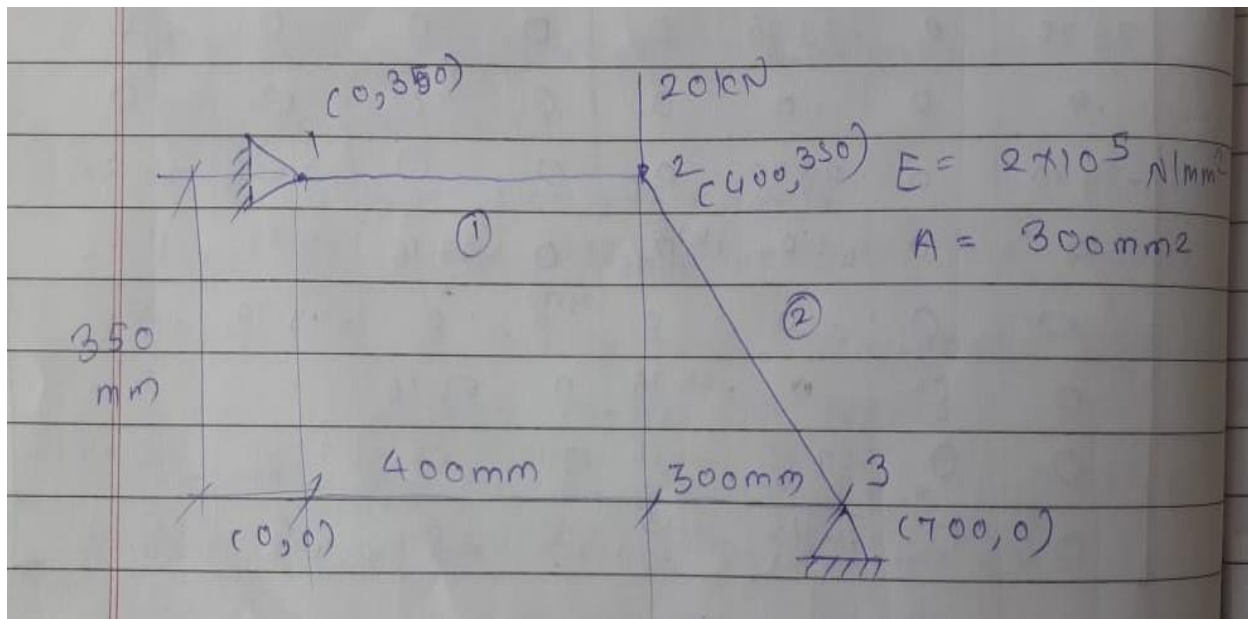 (0,350)
20kN
1
2
(400,350)
E = 2×10⁵ N/mm²
①
A = 300mm2
②
350
mm
400mm
300mm
3
(0,0)
(700,0)